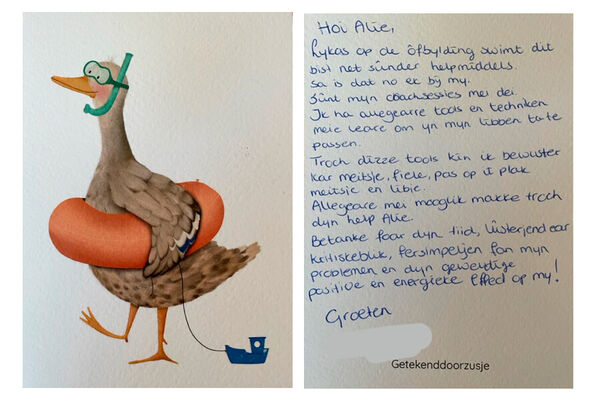 Hoi Alie,
Lykas op de ôfbylding swimt dit
bist net sûnder helpmiddels.
Sa is dat no ek by my.
Sûnt myn coachsessies mei dei.
Ik ha allegearre tools en techniken
meie leare om yn myn libben ta te
passen.
Troch dizze tools kin ik bewuster
kar meitsje, fiele, pas op it plak
meitsje en libje.
Allegeare mei mooglik makke troch
dyn help Alie.
Betanke foar dyn tiid, lústerjend ear
kritiskeblik, fersimpeljen fan myn
problemen en dyn geweldige
positive en energieke effect op my!
Groeten
Getekenddoorzusje